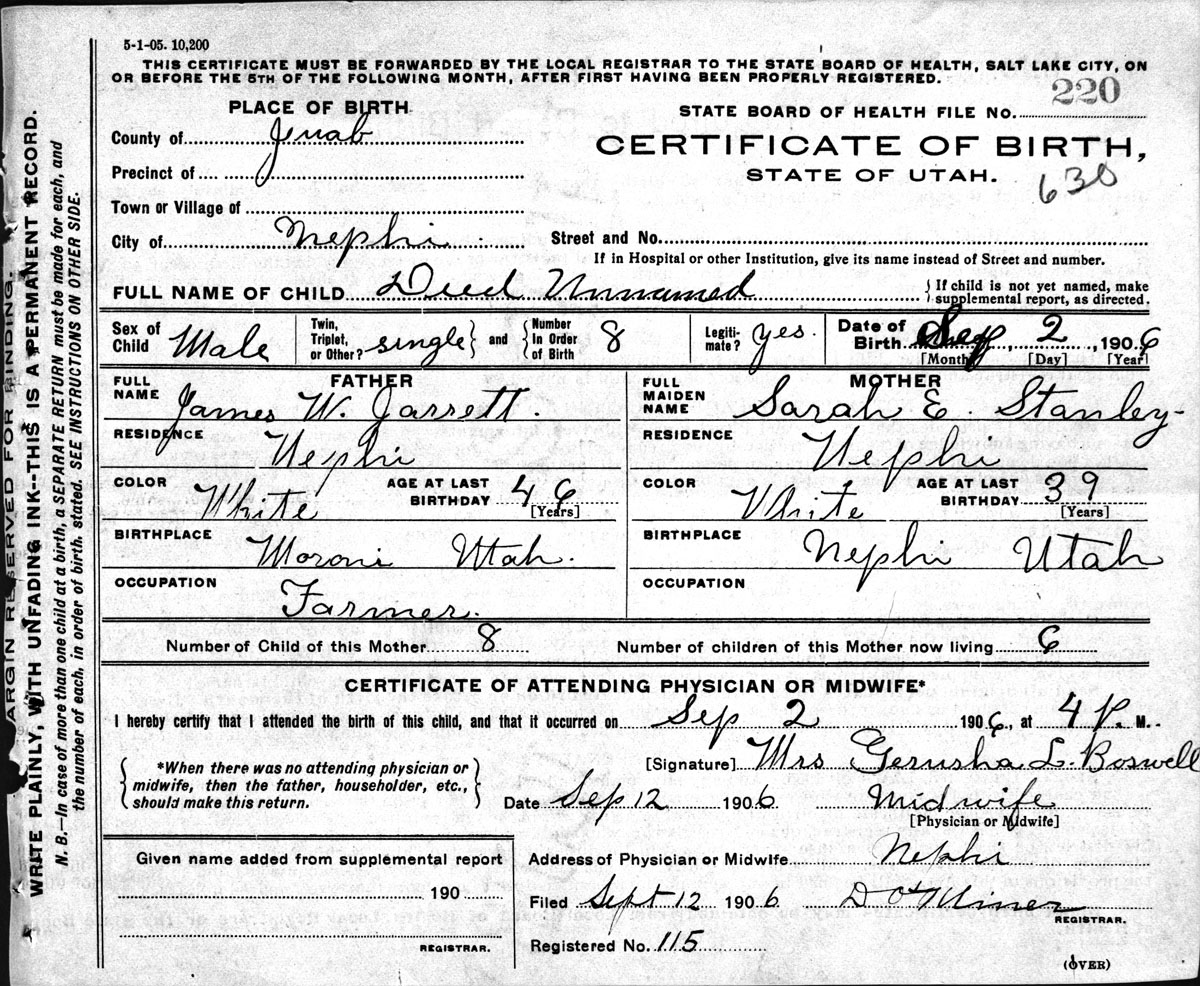 5-1-05. 10,200
THIS CERTIFICATE MUST BE FORWARDED BY THE LOCAL REGISTRAR TO THE STATE BOARD OF HEALTH, SALT LAKE CITY, ON
OR BEFORE THE 5TH OF THE FOLLOWING MONTH, AFTER FIRST HAVING BEEN PROPERLY REGISTERED.
PLACE OF BIRTH
STATE BOARD OF HEALTH FILE NO. 220
County of Juab
CERTIFICATE OF BIRTH,
STATE OF UTAH.
630
Precinct of
Town or Village of
City of Nephi
Street and No.
If in Hospital or other Institution, give its name instead of Street and number.
FULL NAME OF CHILD Died Unnamed
{ If child is not yet named, make
supplemental report, as directed.
Sex of Child Male
Twin, Triplet, or Other? single } and { Number In Order of Birth 8
Legiti-mate? yes.
Date of Birth Sep 2, 1906
[Month] [Day] [Year]
FATHER
FULL NAME James W. Jarrett.
RESIDENCE Nephi
COLOR White AGE AT LAST BIRTHDAY 46 [Years]
BIRTHPLACE Moroni Utah.
OCCUPATION Farmer.
MOTHER
FULL MAIDEN NAME Sarah E. Stanley
RESIDENCE Nephi
COLOR White AGE AT LAST BIRTHDAY 39 [Years]
BIRTHPLACE Nephi Utah
OCCUPATION
Number of Child of this Mother 8 Number of children of this Mother now living 6
CERTIFICATE OF ATTENDING PHYSICIAN OR MIDWIFE*
I hereby certify that I attended the birth of this child, and that it occurred on Sep 2 1906, at 4 P. M.
{ *When there was no attending physician or
midwife, then the father, householder, etc.,
should make this return. }
[Signature] Mrs Gerusha L. Boswell
Date Sep 12 1906 Midwife
[Physician or Midwife]
Given name added from supplemental report
190
REGISTRAR.
Address of Physician or Midwife Nephi
Filed Sept 12 1906 Miner
REGISTRAR.
Registered No. 115
(OVER)
ARGIN RESERVED FOR BINDING.
WRITE PLAINLY, WITH UNFADING INK--THIS IS A PERMANENT RECORD.
N. B.—In case of more than one child at a birth, a SEPARATE RETURN must be made for each, and
the number of each, in order of birth, stated. SEE INSTRUCTIONS ON OTHER SIDE.